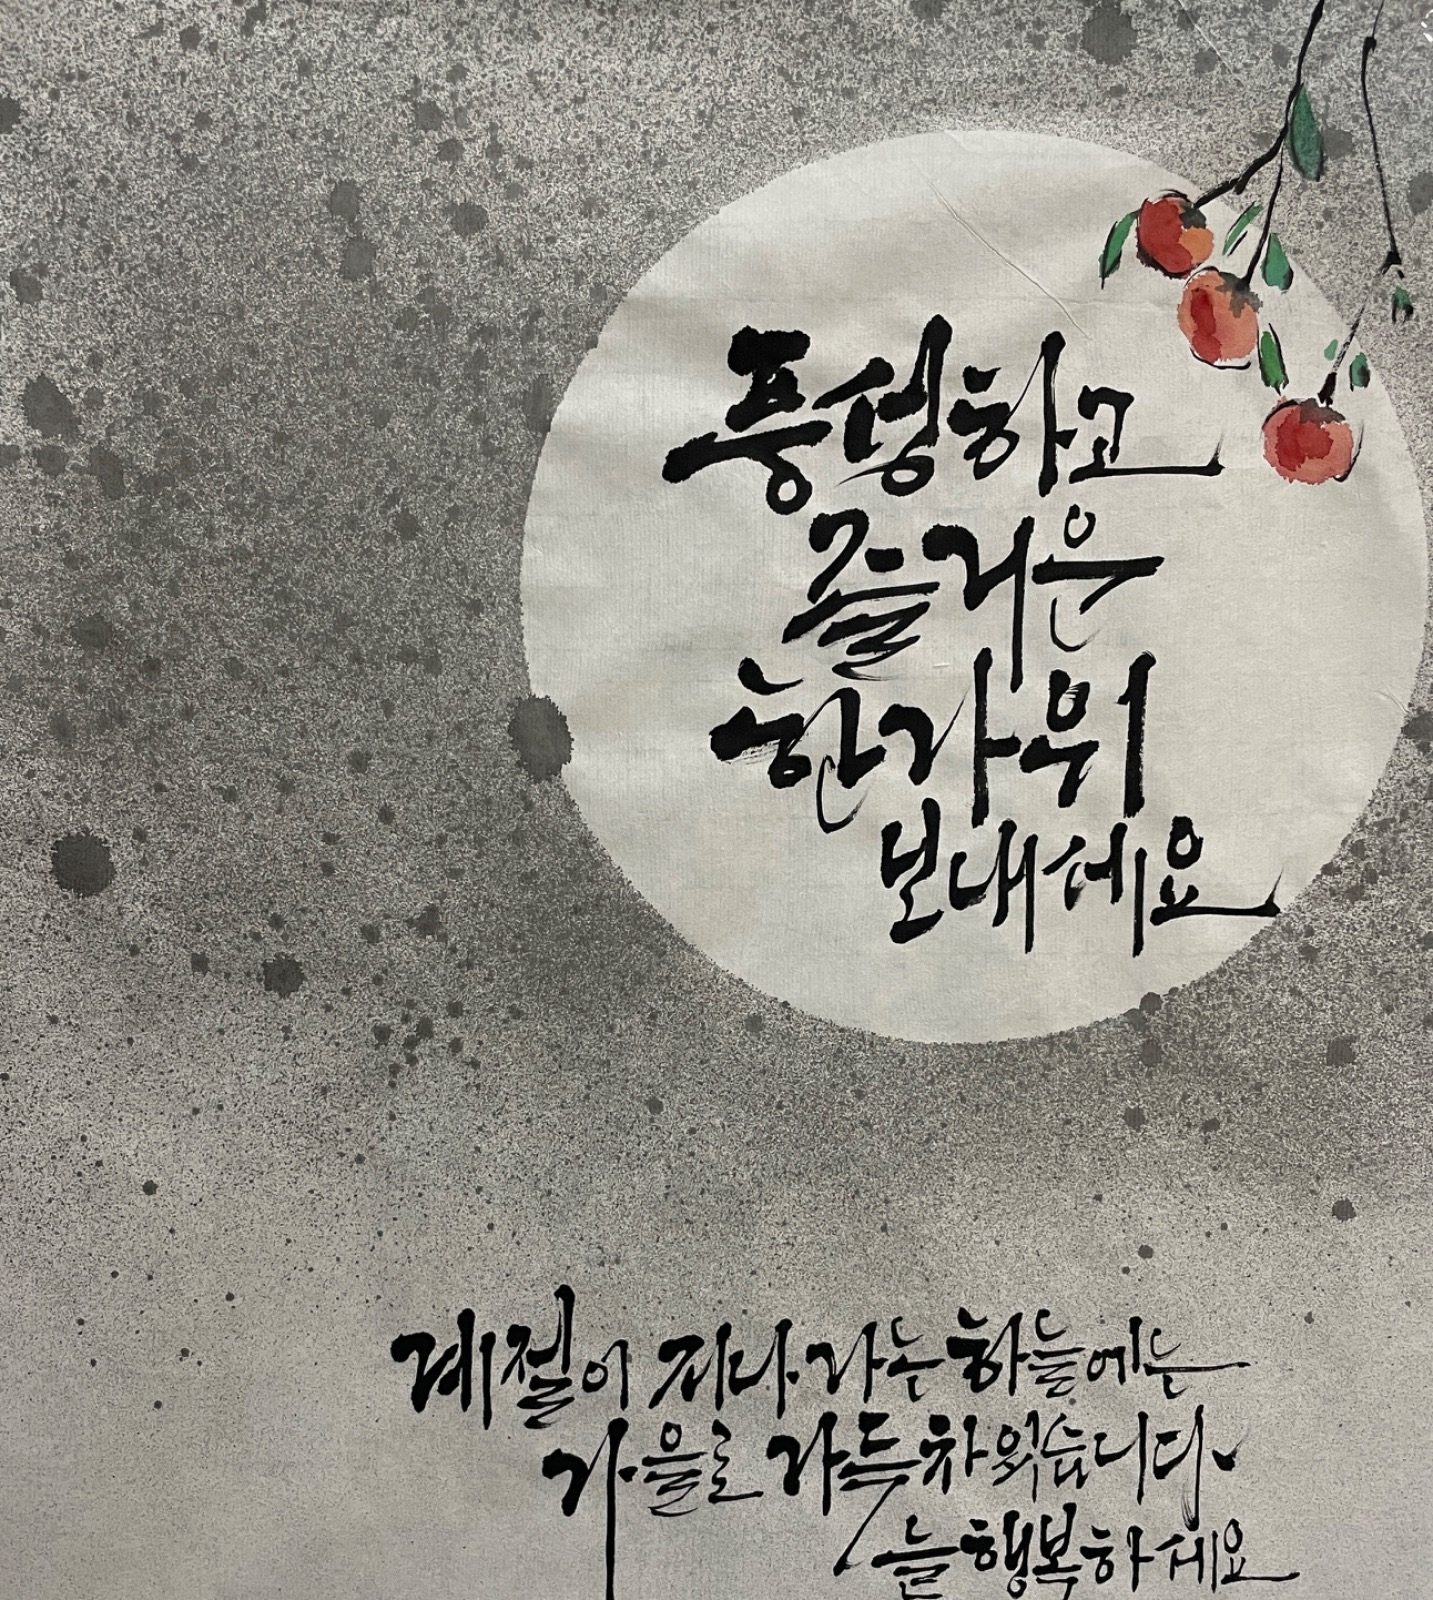 풍성하고
즐거운
한가위
보내세요
계절이 지나가는 하늘에는
가을로 가득 차 있습니다
늘 행복하세요